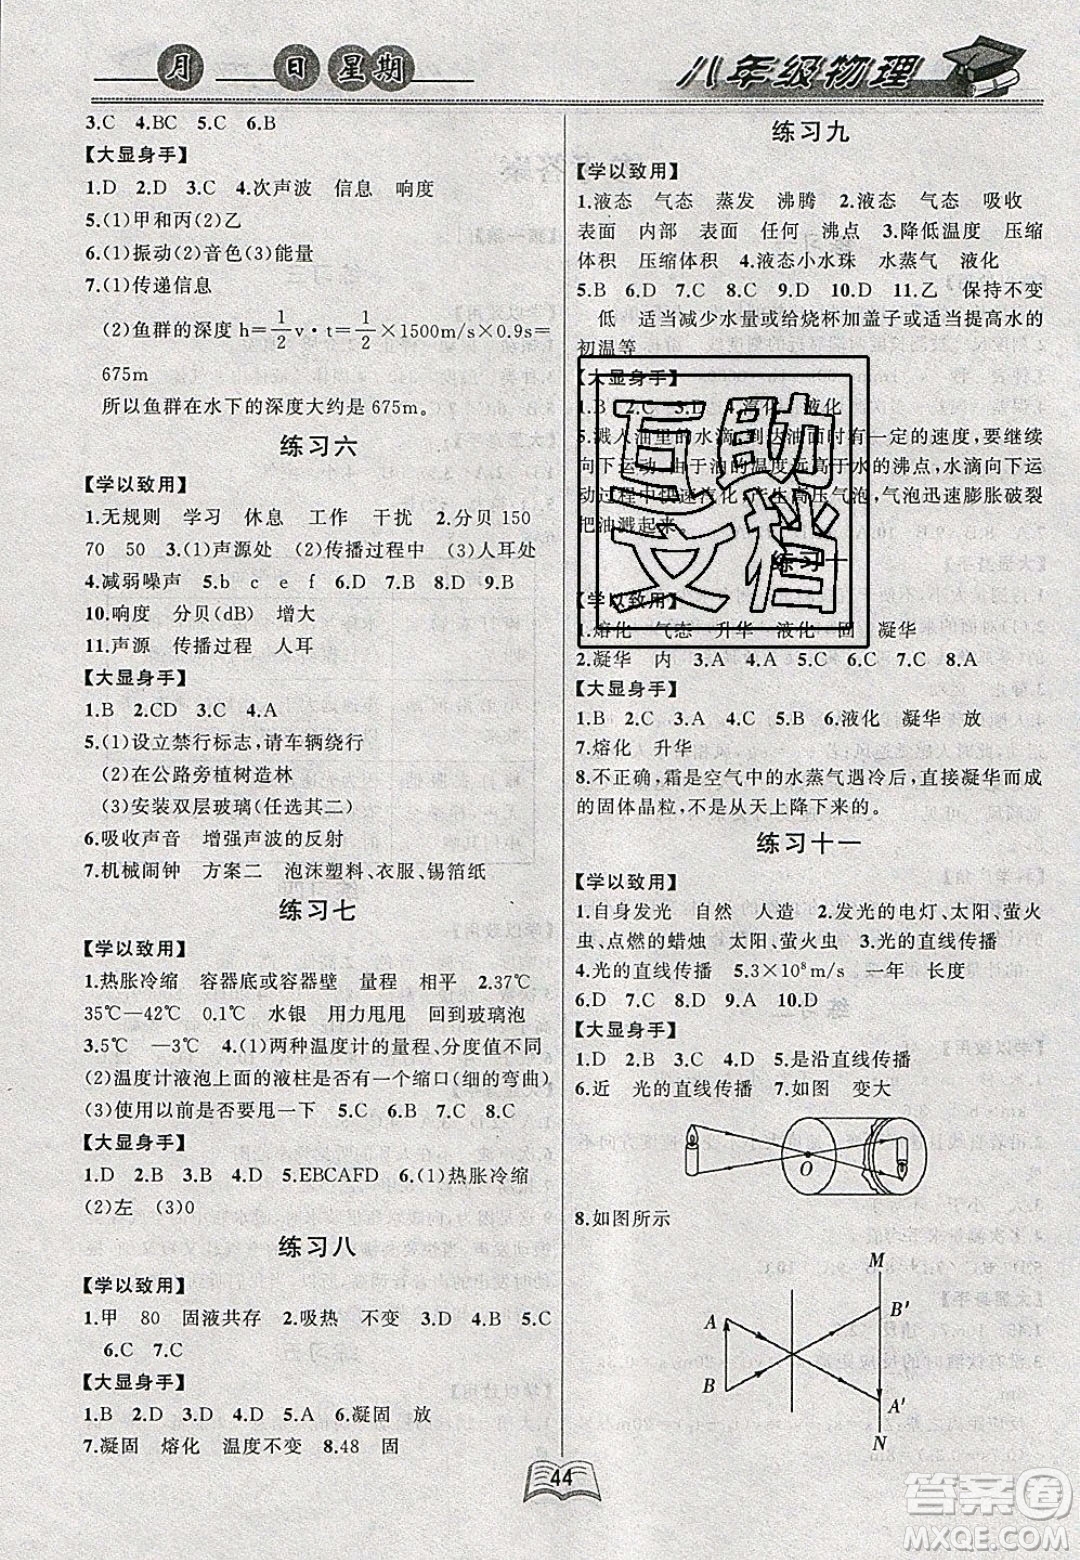 月 日 星期
八年级物理
3.C 4.BC 5.C 6.B
【大显身手】
1.D 2.D 3.C 4.次声波 信息 响度
5.(1)甲和丙(2)乙
6.(1)振动(2)音色(3)能量
7.(1)传递信息
(2)鱼群的深度h=1/2 v·t=1/2×1500m/s×0.9s=
675m
所以鱼群在水下的深度大约是675m。
练习六
【学以致用】
1.无规则 学习 休息 工作 干扰 2.分贝 150
70 50 3.(1)声源处 (2)传播过程中 (3)人耳处
4.减弱噪声 5.b c e f 6.D 7.B 8.D 9.D
10.响度 分贝(dB) 增大
11.声源 传播过程 人耳
【大显身手】
1.B 2.CD 3.C 4.A
5.(1)设立禁行标志,请车辆绕行
(2)在公路旁植树造林
(3)安装双层玻璃(任选其二)
6.吸收声音 增强声波的反射
7.机械闹钟 方案二 泡沫塑料、衣服、锡箔纸
练习七
【学以致用】
1.热胀冷缩 容器底或容器壁 量程 相平 2.37℃
35℃—42℃ 0.1℃ 水银 用力甩甩 回到玻璃泡
3.5℃ —3℃ 4.(1)两种温度计的量程、分度值不同
(2)温度计液泡上面的液柱是否有一个缩口(细的弯曲)
(3)使用前是否要甩一下 5.C 6.B 7.C 8.C
【大显身手】
1.D 2.B 3.B 4.A 5.EBCAFD 6.(1)热胀冷缩
(2)左 (3)0
练习八
【学以致用】
1.甲 80 固液共存 2.吸热 不变 3.D 4.B 5.C
6.C 7.C
【大显身手】
1.B 2.D 3.D 4.D 5.A 6.凝固 放
7.凝固 熔化 温度不变 8.48 固
练习九
【学以致用】
1.液态 气态 蒸发 沸腾 2.液态 气态 吸收
表面 内部 表面 任何 沸点 3.降低温度 压缩
体积 压缩体积 4.液态小水珠 水蒸气 液化
5.B 6.D 7.C 8.B 9.D 10.D 11.乙 保持不变
低 适当减少水量或给烧杯加盖子或适当提高水的
初温等
【大显身手】
1.B 2.C 3.D 4.汽化 液化
5.溅入油里的水滴,到达油面时有一定的速度,要继续
向下运动,由于油的温度远高于水的沸点,水滴向下运
动过程中快速汽化,产生高压气泡,气泡迅速膨胀破裂
把油溅起来
练习十
【学以致用】
1.熔化 气态 升华 液化 固 凝华
2.凝华 内 3.A 4.A 5.C 6.C 7.C 8.A
【大显身手】
1.B 2.C 3.A 4.B 5.B 6.液化 凝华 放
7.熔化 升华
8.不正确,霜是空气中的水蒸气遇冷后,直接凝华而成
的固体晶粒,不是从天上降下来的。
练习十一
【学以致用】
1.自身发光 自然 人造 2.发光的电灯、太阳、萤火
虫、点燃的蜡烛 太阳、萤火虫 3.光的直线传播
4.光的直线传播 5.3×10⁸m/s 一年 长度
6.D 7.D 8.C 9.A 10.D
【大显身手】
1.D 2.B 3.A 4.D 5.是沿直线传播
6.近 光的直线传播 7.如图 变大
O
8.如图所示
M
A
B′
B
A′
N
44
互助文档
答案圈
MXQE.COM